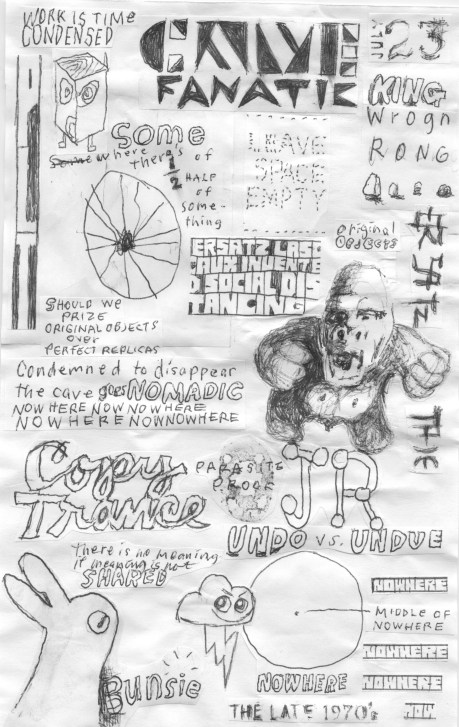 WORK IS TIME
CONDENSED
CAVE
FANATIK
JULY 23
KING
Wrogn
RONG
SOME
Somewhere
there's 1/2 of
HALF
of
some-
thing
LEAVE
SPACE
EMPTY
original
OBJECTS
ERSATZ LAST
CAUX INVENTE
D SOCIAL DIS
TANCING
ERSATZ
SHOULD WE
PRIZE
ORIGINAL OBJECTS
OVER
PERFECT REPLICAS
Condemned to disappear
the cave goes NOMADIC
NOW HERE NOW NOWHERE
NOW HERE NOWNOWHERE
THE
Copy
Trance
PARASITE
PROOF
JR
UNDO VS. UNDUE
There is no meaning
if meaning is not
SHARED
NOWHERE
MIDDLE OF
NOWHERE
NOWHERE
NOWHERE
NOWHERE
NOW
Bunsie
THE LATE 1970's